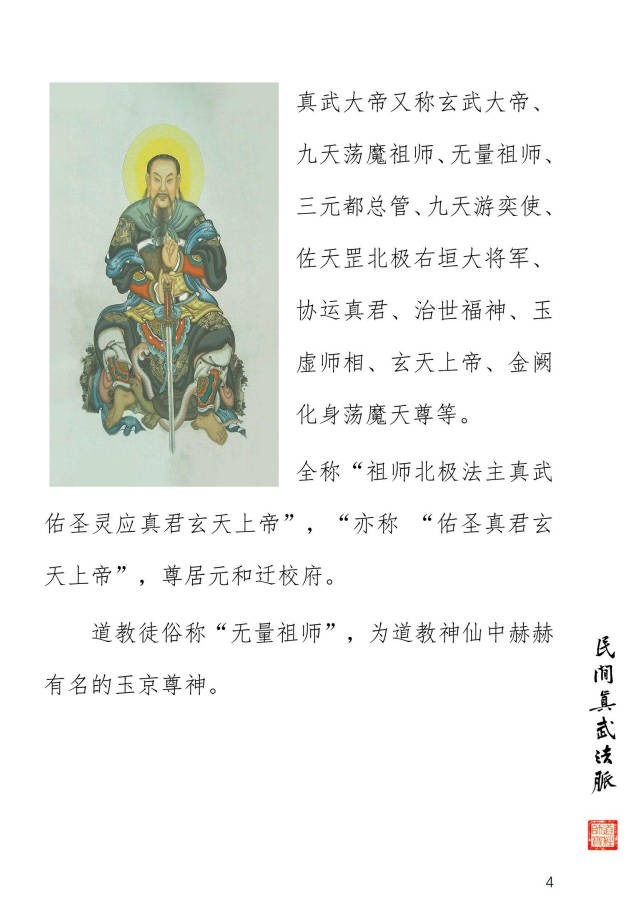 真武大帝又称玄武大帝、
九天荡魔祖师、无量祖师、
三元都总管、九天游奕使、
佐天罡北极右垣大将军、
协运真君、治世福神、玉
虚师相、玄天上帝、金阙
化身荡魔天尊等。
全称“祖师北极法主真武
佑圣灵应真君玄天上帝”，“亦称 “佑圣真君玄
天上帝”，尊居元和迁校府。
道教徒俗称“无量祖师”，为道教神仙中赫赫
有名的玉京尊神。
民间真武法脉
4